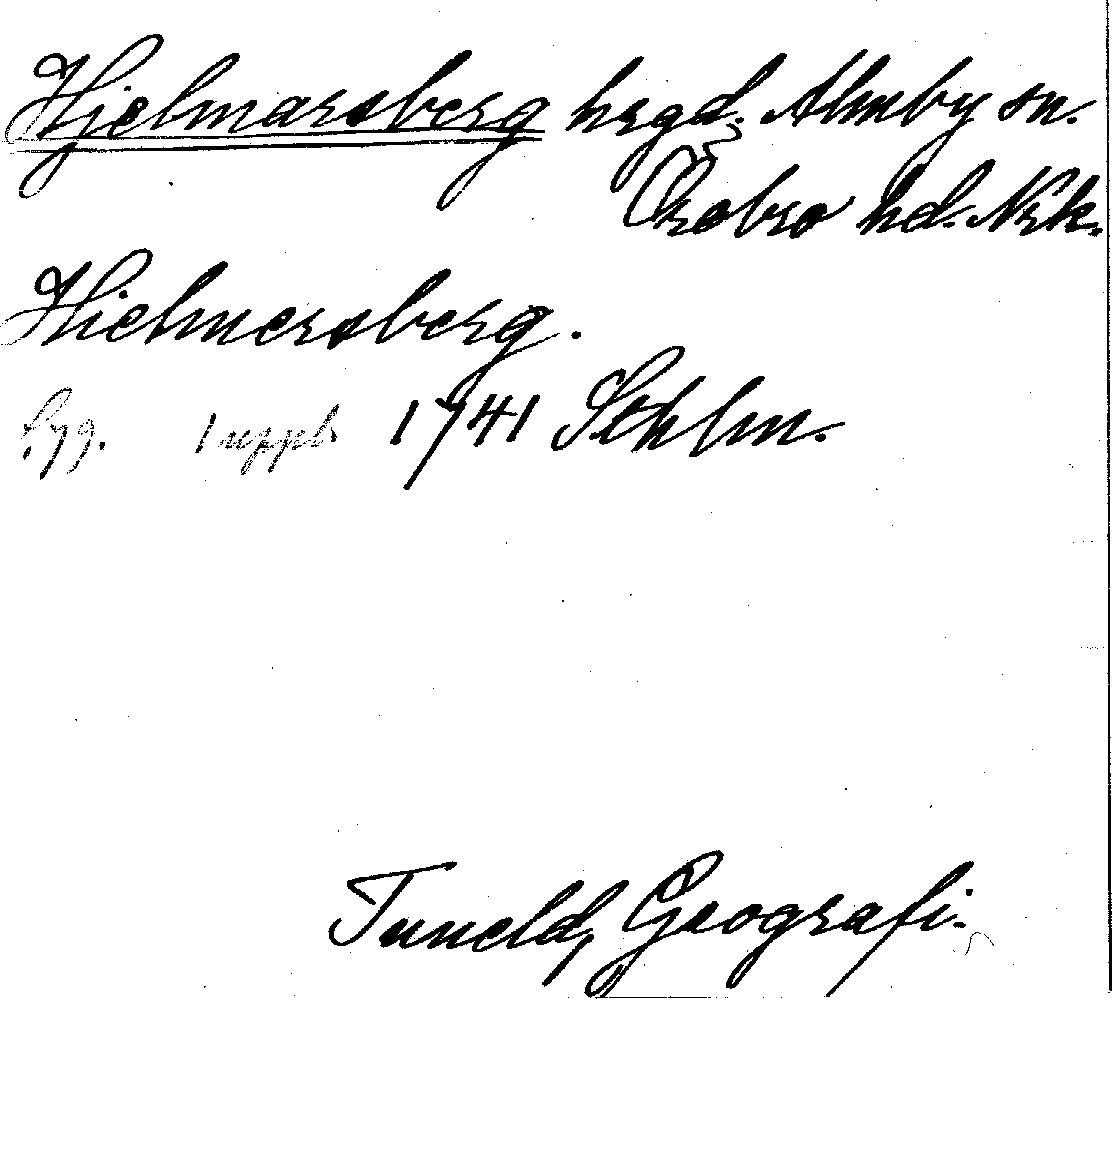 Hjelmarsberg hrgd. Almby sn.
Örebro hd. Nrk.
Hielmersberg.
1 uppl. 1741 Sthlm.
Tuneld, Geografi.